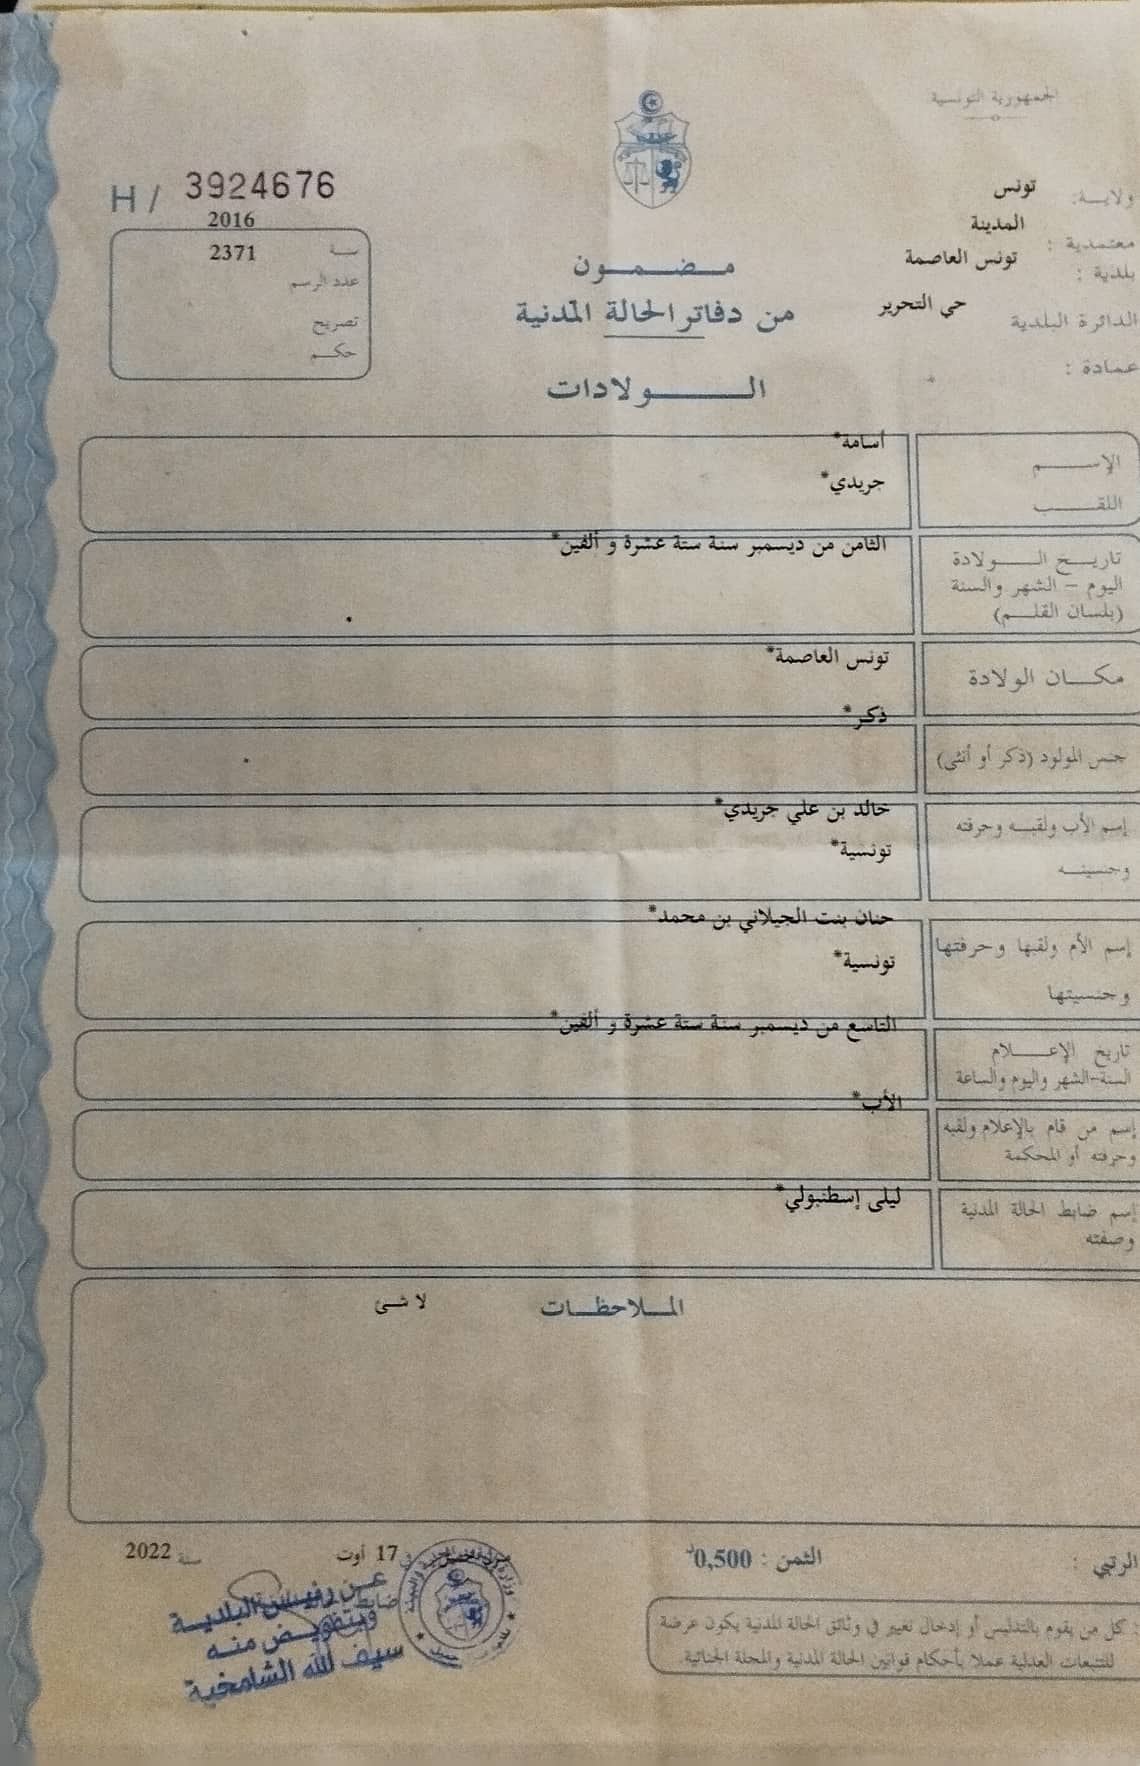 الجمهورية التونسية
ولايـــة: تونس
معتمدية : المدينة
بلدية : تونس العاصمة
الدائرة البلدية حي التحرير
عمادة :
H / 3924676
2016
سنـــة 2371
عدد الرسم
تصريح
حكـــم
مـضـمـون
من دفاتر الحالة المدنية
الـــولادات
الإســـم أسامة*
اللقـــب جريدي*
تاريـخ الـــولادة الثامن من ديسمبر سنة ستة عشرة و ألفين*
اليوم – الشهر والسنة
(بلسان القلـــم)
مكـــان الولادة تونس العاصمة*
جنس المولود (ذكر أو أنثى) ذكر*
إسم الأب ولقبـــه وحرفته خالد بن علي جريدي*
وجنسيتـــه تونسية*
إسم الأم ولقبها وحرفتها حنان بنت الجيلاني بن محمد*
وجنسيتها تونسية*
تاريخ الإعـــلام التاسع من ديسمبر سنة ستة عشرة و ألفين*
السنة-الشهر واليوم والساعة
إسم من قام بالإعلام ولقبه الأب*
وحرفته أو المحكمة
إسم ضابط الحالة المدنية ليلى إسطنبولي*
وصفته
المـــلاحظـــات لا شئ
الرتبي :
الثمن : 0,500د
17 أوت سنة 2022
عـن رئيس البلديـة
وبتفويـض منـه
سيف الله الشامخية
: كل من يقوم بالتدليس أو إدخال تغيير في وثائق الحالة المدنية يكون عرضة
للتتبعات العدلية عملا بأحكام قوانين الحالة المدنية والمجلة الجنائية